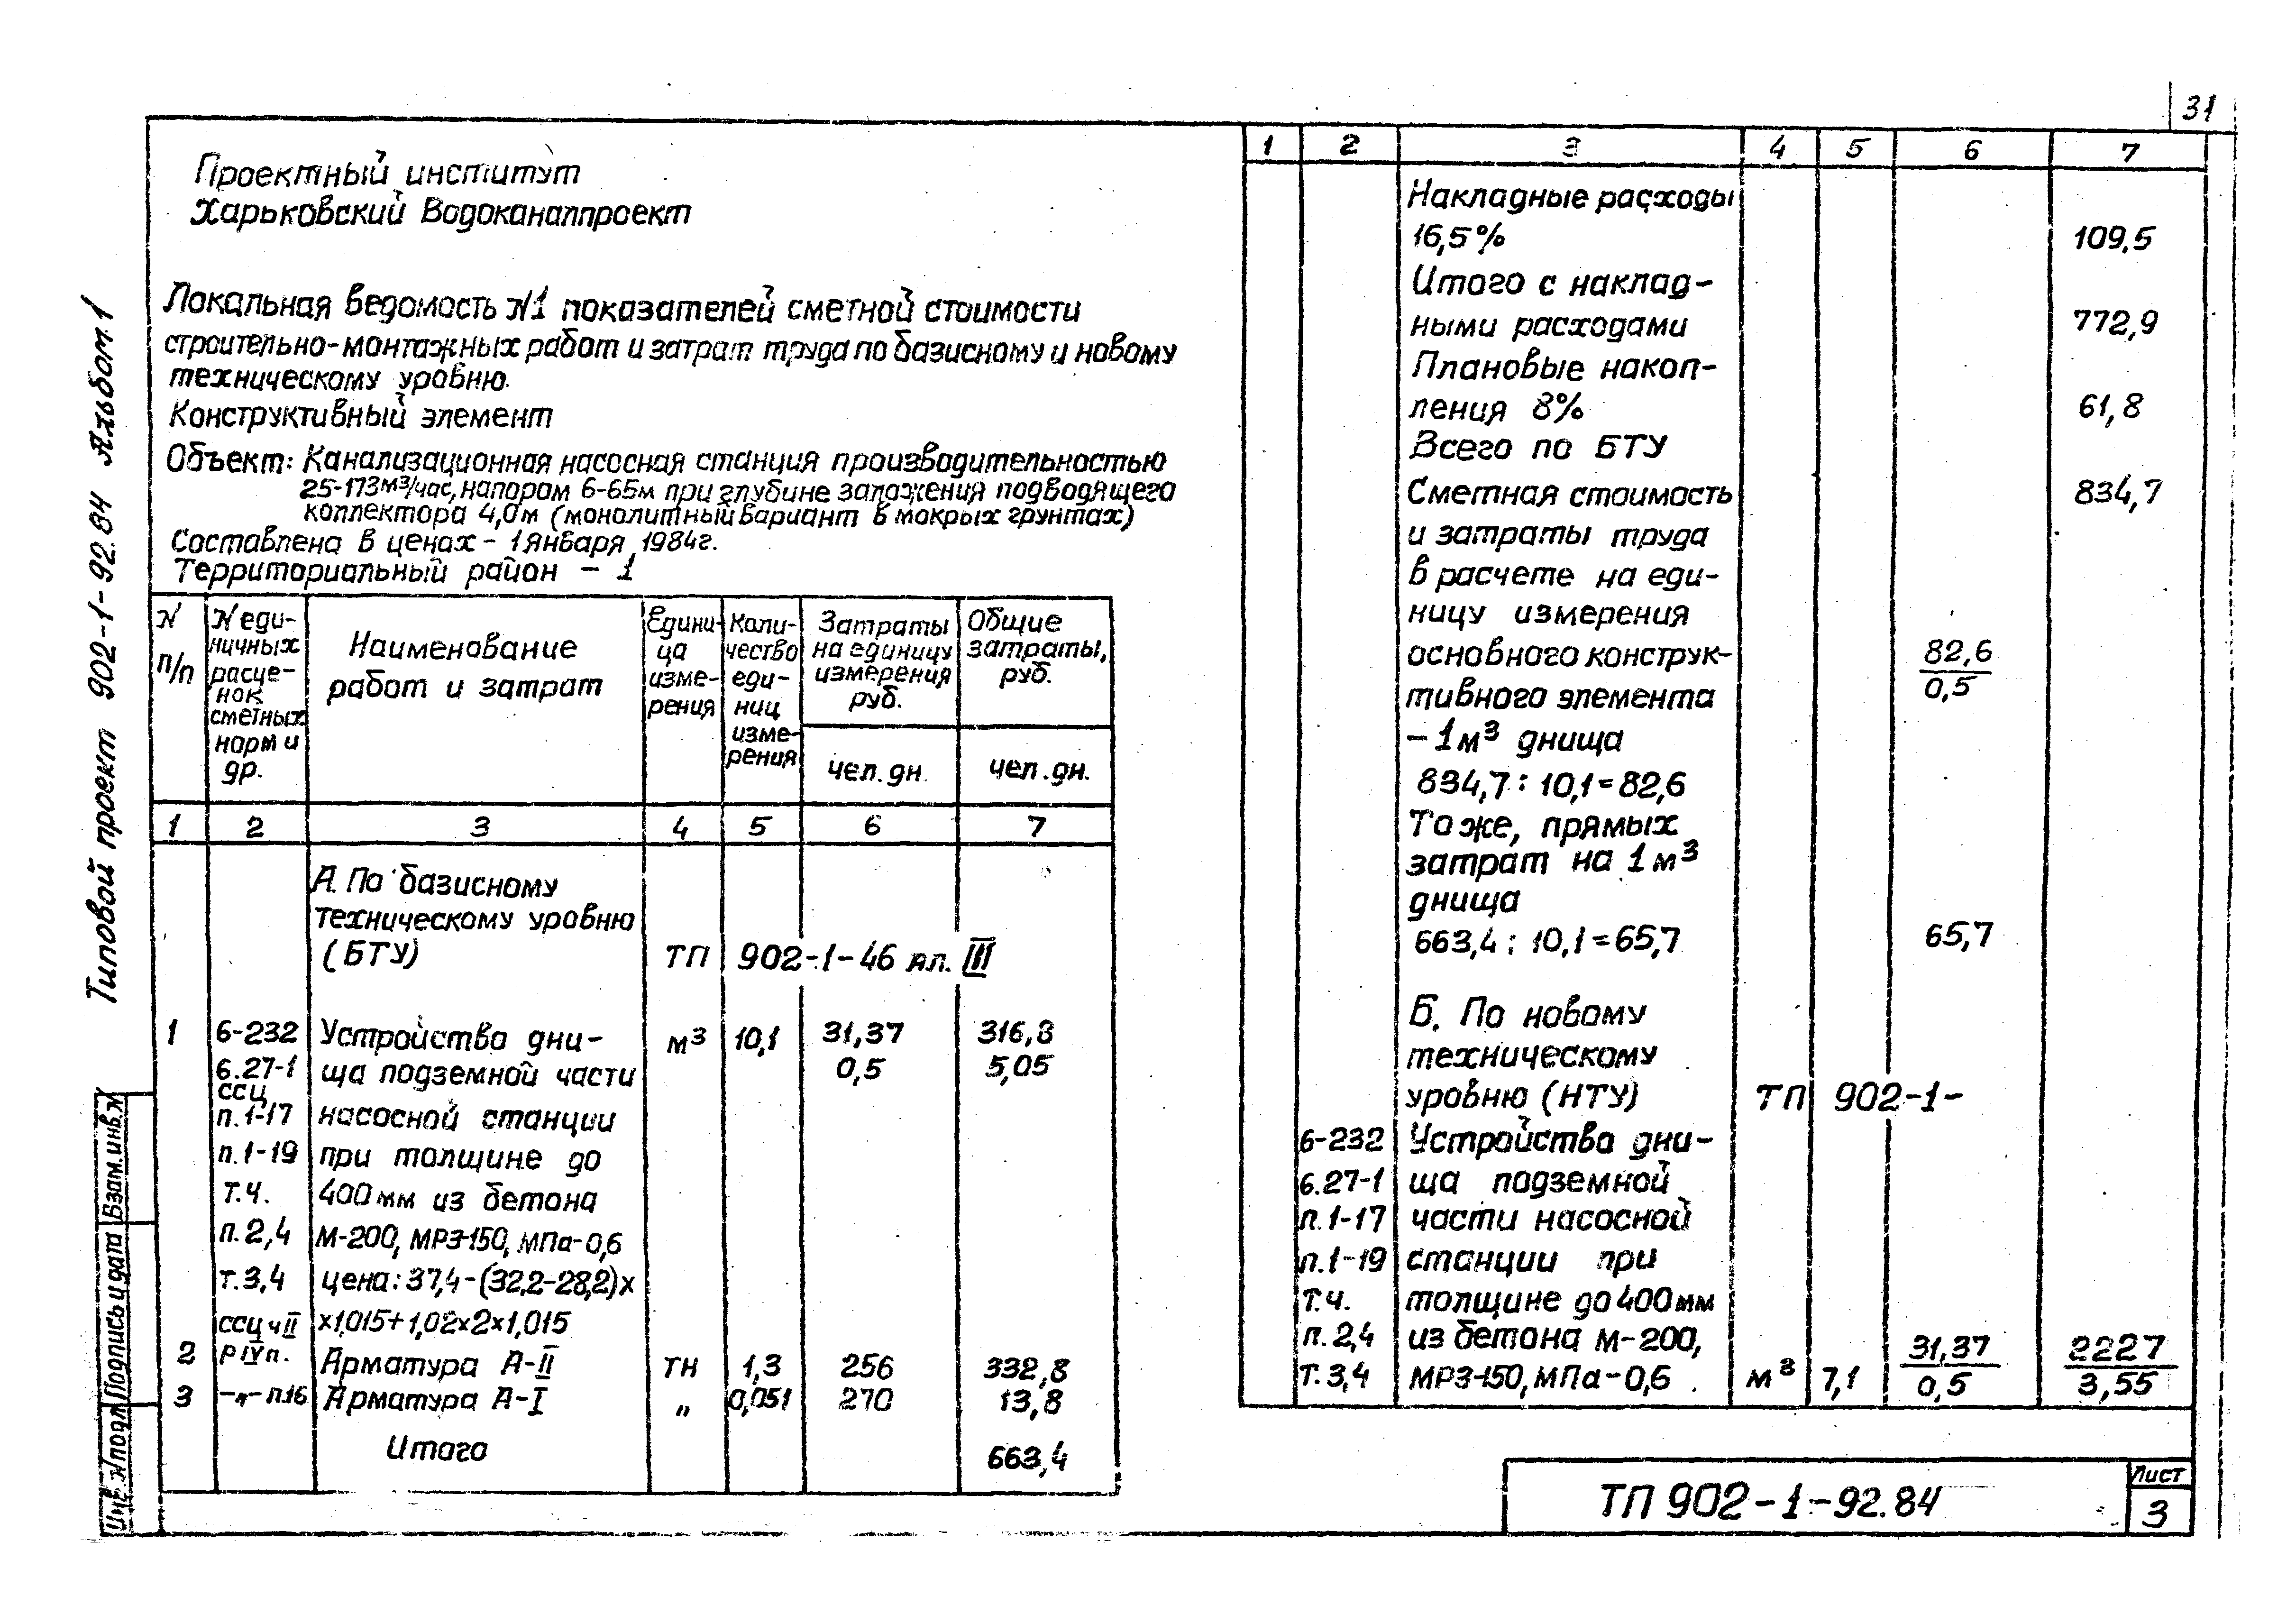 31
Типовой проект 902-1-92.84 Альбом 1
Проектный институт
Харьковский Водоканалпроект
Локальная ведомость N1 показателей сметной стоимости
строительно-монтажных работ и затрат труда по базисному и новому
техническому уровню.
Конструктивный элемент
Объект: Канализационная насосная станция производительностью
25-173м³/час, напором 6-65м при глубине заложения подводящего
коллектора 4,0м (монолитный вариант в мокрых грунтах)
Составлена в ценах - 1 января 1984г.
Территориальный район - 1
N п/п | N еди-ничных расце-нок сметных норм и др. | Наименование работ и затрат | Едини-ца изме-рения | Коли-чество еди-ниц изме-рения | Затраты на единицу измерения руб. чел.дн. | Общие затраты, руб. чел.дн.
1 2 3 4 5 6 7
А. По базисному
техническому уровню
(БТУ) ТП 902-1-46 ал. III
1 6-232 Устройство дни- м³ 10,1 31,37 316,8
6.27-1 ща подземной части 0,5 5,05
ссц
п.1-17 насосной станции
п.1-19 при толщине до
т.ч. 400мм из бетона
п.2,4 М-200, МРЗ-150, МПа-0,6
т.3,4 цена: 37,4-(32,2-28,2)х
ссц ч II х1,015+1,02х2х1,015
2 р IV п. Арматура А-II тн 1,3 256 332,8
3 -"- п.16 Арматура А-I " 0,051 270 13,8
Итого 663,4
1 2 3 4 5 6 7
Накладные расходы
16,5% 109,5
Итого с наклад-
ными расходами 772,9
Плановые накоп-
ления 8% 61,8
Всего по БТУ
Сметная стоимость 834,7
и затраты труда
в расчете на еди-
ницу измерения
основного конструк- 82,6
тивного элемента 0,5
- 1м³ днища
834,7 : 10,1=82,6
То же, прямых
затрат на 1м³
днища
663,4 : 10,1=65,7 65,7
Б. По новому
техническому
уровню (НТУ) ТП 902-1-
6-232 Устройство дни-
6.27-1 ща подземной
п.1-17 части насосной
п.1-19 станции при
т.ч. толщине до 400мм
п.2,4 из бетона М-200, 31,37 2227
т.3,4 МРЗ-150, МПа-0,6 м³ 7,1 0,5 3,55
Инв.Nподл Подпись и дата Взам.инв.N
ТП 902-1-92.84
Лист
3